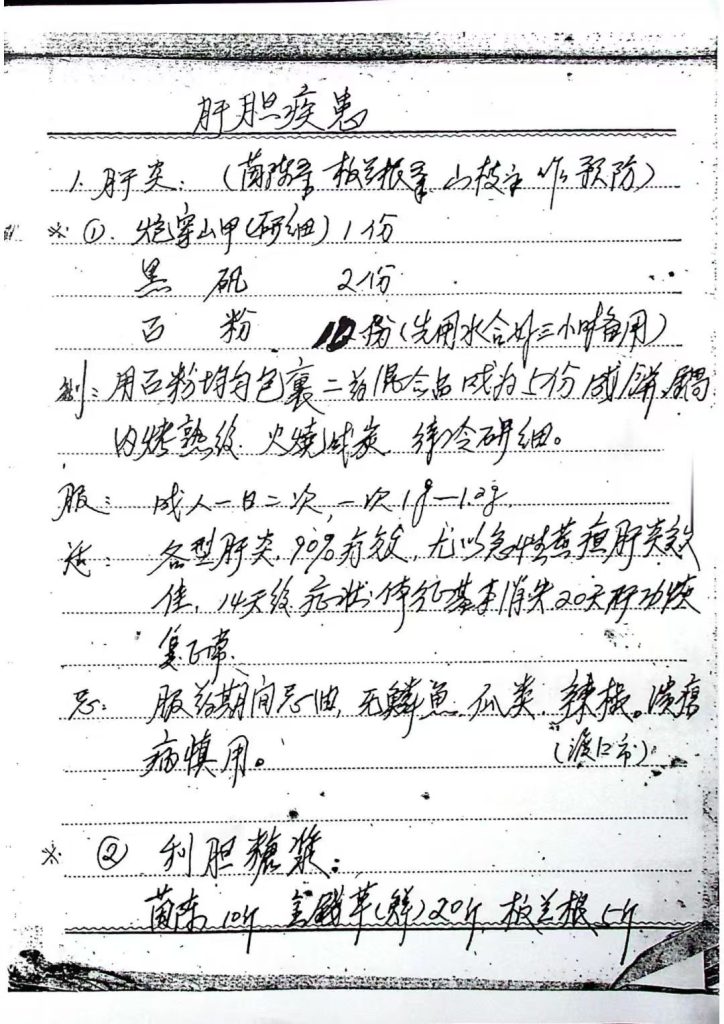 肝胆疾患
1. 肝炎: (茵陈 板兰根 山枝 作预防)
※ ① 炮穿山甲(研细) 1份
黑 矾 2份
石 粉 10 份(先用水合好三小时备用)
制: 用石粉均匀包裹二药混合 成为5份 成饼
内烤熟后 火燒成炭 待冷研细。
服: 成人一日二次, 一次1g—1.2g.
各型肝炎, 90%有效, 尤以急性黄疸肝炎效
佳, 14天后症状体征基本消失 20天肝功恢
复正常.
忌: 服药期间忌油, 无鳞鱼, 瓜类, 辣椒。溃疡
病慎用。 (渡口市)
※ ② 利胆糖漿:
茵陈 10斤 金錢草(鲜) 20斤, 板兰根 5斤